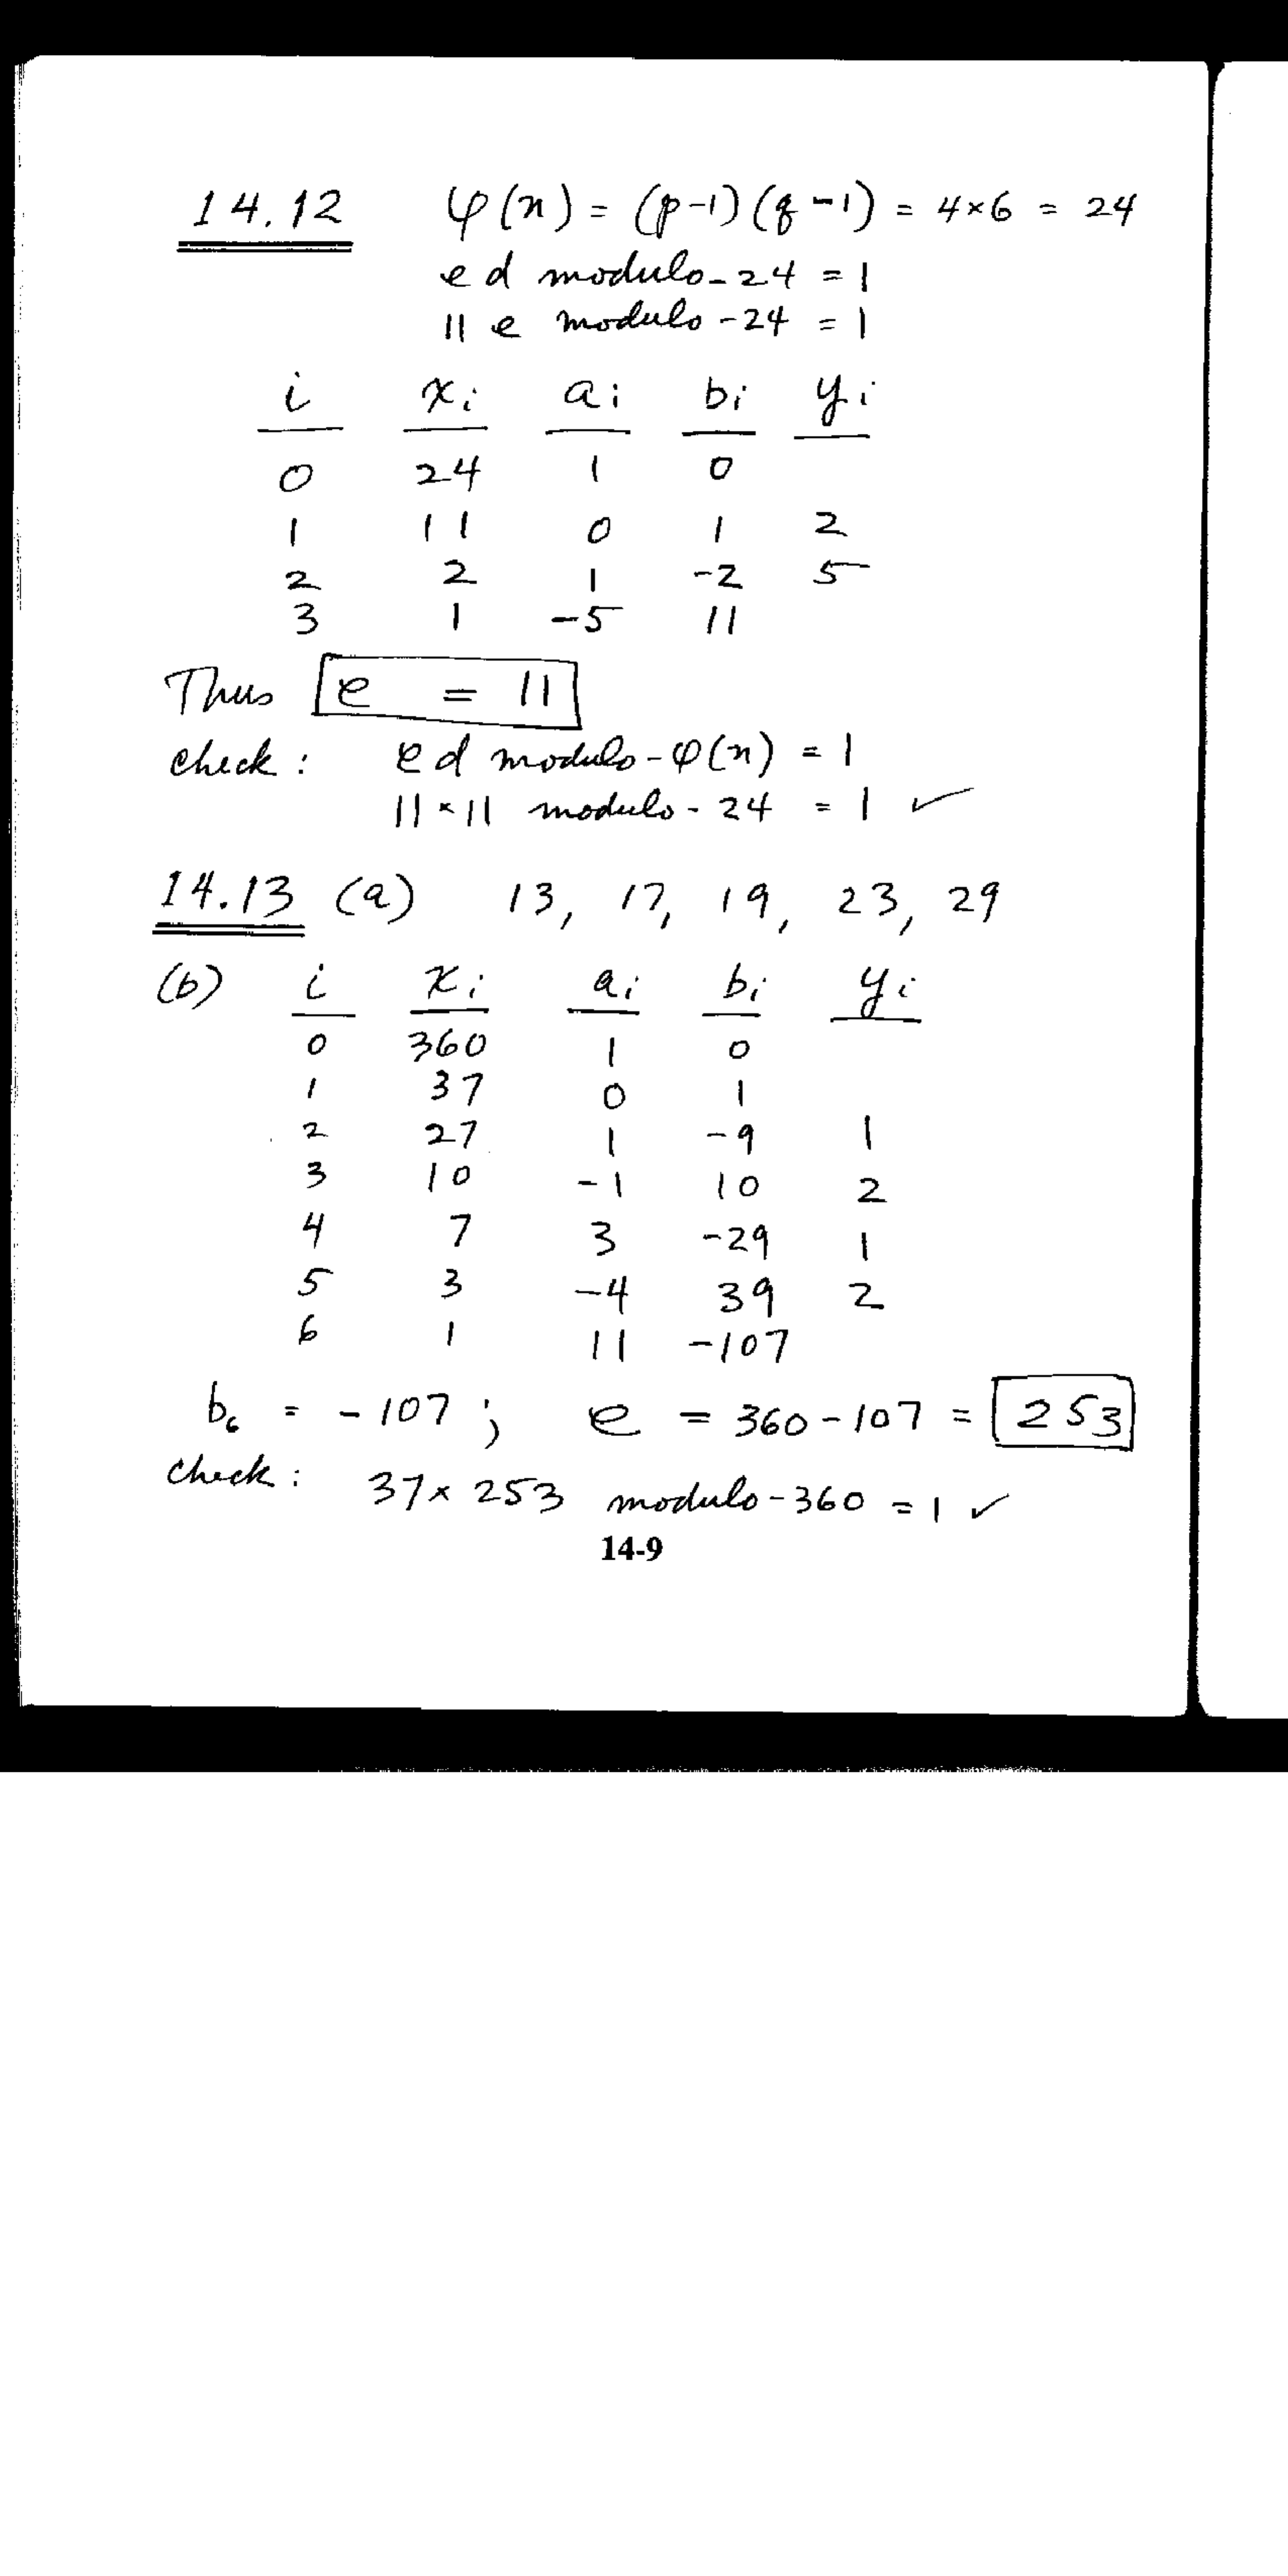 14.12 φ(n) = (p-1)(q-1) = 4×6 = 24
e d modulo-24 = 1
11 e modulo-24 = 1
i xi ai bi yi
0 24 1 0
1 11 0 1 2
2 2 1 -2 5
3 1 -5 11
Thus e = 11
check: e d modulo-φ(n) = 1
11×11 modulo-24 = 1 ✓
14.13 (a) 13, 17, 19, 23, 29
(b) i xi ai bi yi
0 360 1 0
1 37 0 1
2 27 1 -9 1
3 10 -1 10 2
4 7 3 -29 1
5 3 -4 39 2
6 1 11 -107
b6 = -107; e = 360-107 = 253
check: 37× 253 modulo-360 = 1 ✓
14-9